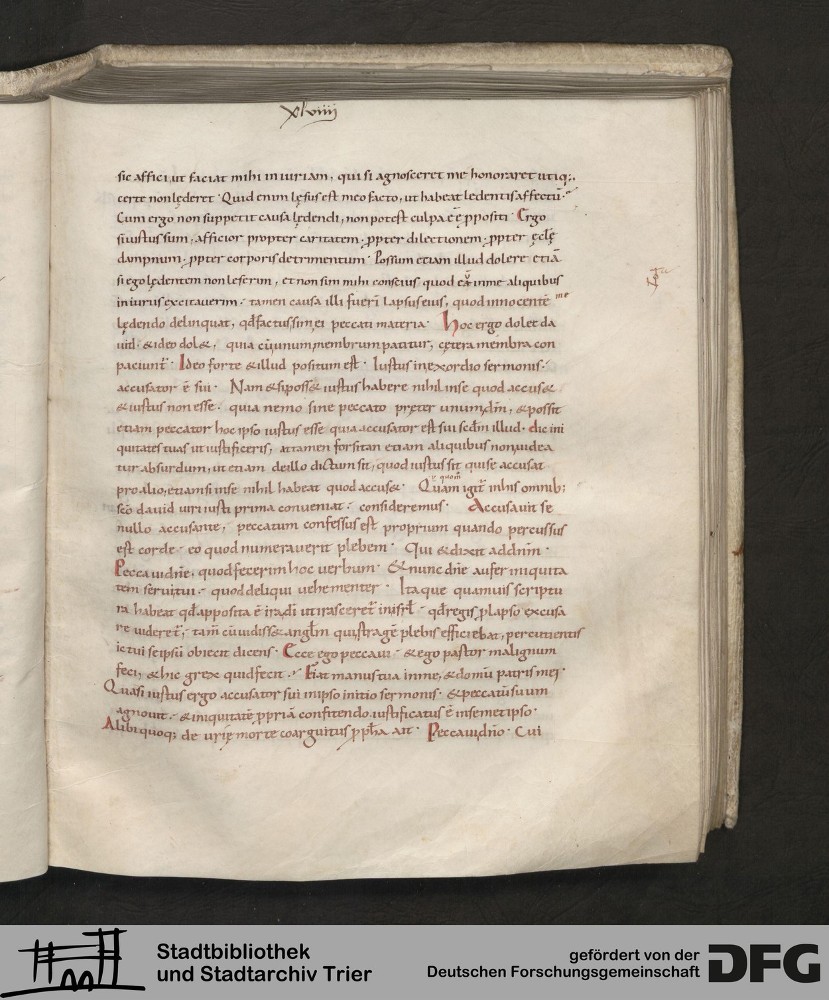 xlviiii
sic affici, ut faciat mihi iniuriam, qui si agnosceret me honoraret utiq;.
certe non lęderet · Quid enim lęsus est meo facto, ut habeat ledentis affectū·
Cum ergo non suppetit causa lędendi, non potest culpa eē ꝓpositi · Ergo
si iustus sum, afficior propter caritatem · ꝓpter dilectionem · ꝓpter ęclę
dampnum · ꝓpter corporis detrimentum · Possum etiam illud dolere etiā
si ego lędentem non leserim, et non sim mihi conscius quod in me aliquibus
iniuriis excitaverim · tamen causa illi fuerī lapsus eius, quod innocentē me
lędendo delinquat, qđ factus sim ei peccati materia · Hoc ergo dolet da
uid · & ideo dol&, quia cū unum membrum patitur, cętera membra con
paciunt̄ · Ideo forte & illud positum est · Iustus in exordio sermonis ·
accusator ē sui · Nam & si poss& iustus habere nihil in se quod accus&
& iustus non esse · quia nemo sine peccato pręter unum dm̄, & possit
etiam peccator hoc ipso iustus esse quia accusator est sui scdm̄ illud · dic ini
quitates tuas ut iustificeris, attamen forsitan etiam aliquibus non videa
tur absurdum, ut etiam de illo dictum sit, quod iustus sit qui se accusat
pro alio, etiam si in se nihil habeat quod accus& · Quam igit̄ in his omnib;
sc̄o david viri iusti prima conveniat · consideremus · Accusavit se
nullo accusante, peccatum confessus est proprium quando percussus
est corde · eo quod numeraverit plebem · Qui & dixit ad dnm̄ ·
Peccavi dn̄e, quod fecerim hoc verbum · & nunc dn̄e aufer iniquita
tem servi tui · quod deliqui vehementer · Itaque quamuis scriptu
ra habeat qđ apposita ē ira dī ut irasceret̄ in isrl̄ · qđ regis ꝓlapso excusa
re videret̄, tam̄ cū vidiss& angl̄m qui stragē plebis efficiebat, percutientis
ictui se ipsū obiecit dicens · Ecce ego peccavi · & ego pastor malignum
feci, & hic grex quid fecit · Fiat manus tua in me, & domū patris mei ·
Quasi iustus ergo accusator sui in ipso initio sermonis · & peccatū suum
agnovit · & iniquitatē ꝓpriā confitendo iustificatus ē in semetipso ·
Alibi quoq; de urię morte coarguitus ꝓph̄a ait · Peccavi dn̄o · Cui
Stadtbibliothek
und Stadtarchiv Trier
gefördert von der
Deutschen Forschungsgemeinschaft
DFG